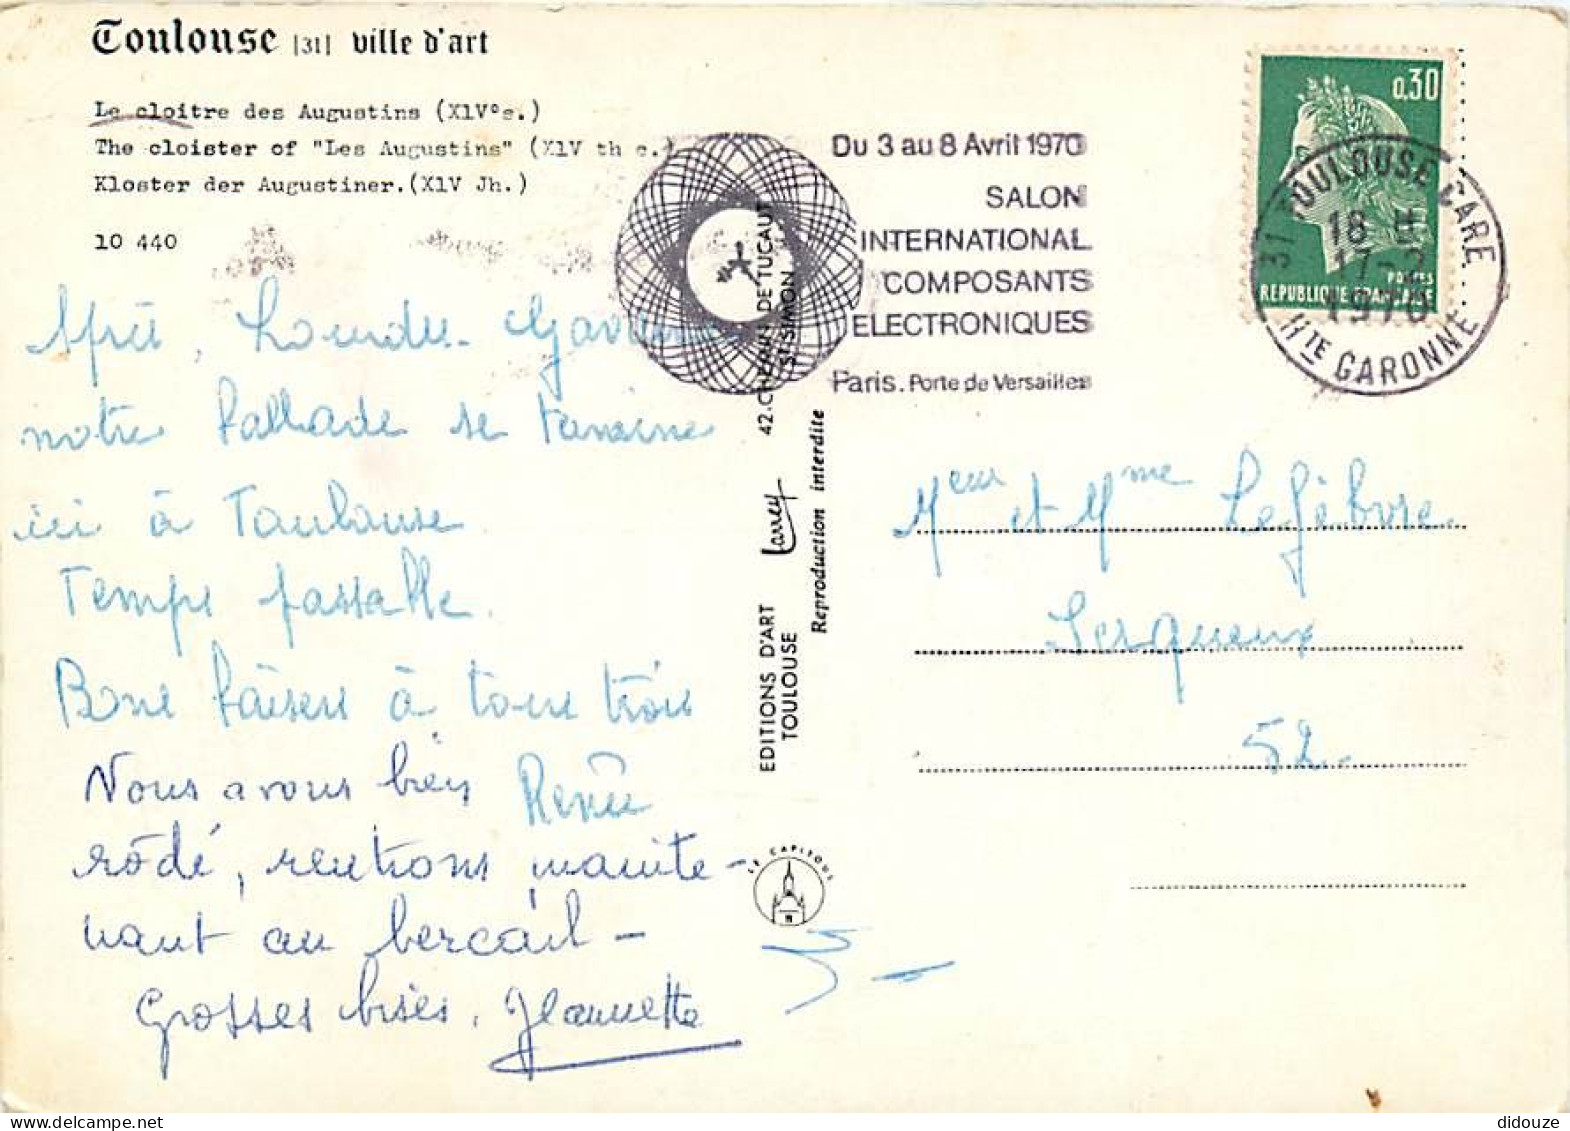 Toulouse [31] ville d'art
Le cloitre des Augustins (X1V°s.)
The cloister of "Les Augustins" (X1V th c.)
Kloster der Augustiner.(X1V Jh.)
10 440
Du 3 au 8 Avril 1970
SALON
INTERNATIONAL
COMPOSANTS
ELECTRONIQUES
Paris. Porte de Versailles
0,30
POSTES
REPUBLIQUE FRANÇAISE
31 TOULOUSE GARE
18 H
17-2
1970
Hte GARONNE
Après, Lourdes. Gavarnie
notre ballade se termine
ici à Toulouse.
Temps passable.
Bons baisers à tous trois
Renée
Nous avons bien
rôdé, rentrons mainte-
nant au bercail -
Grosses bises. Jeannette
EDITIONS D'ART Larrey 42.CHEMIN DE TUCAUT
TOULOUSE St SIMON
Reproduction interdite
LE CAPITOUL
Meur et Mme Lefèbvre.
Serqueux
52.
didouze